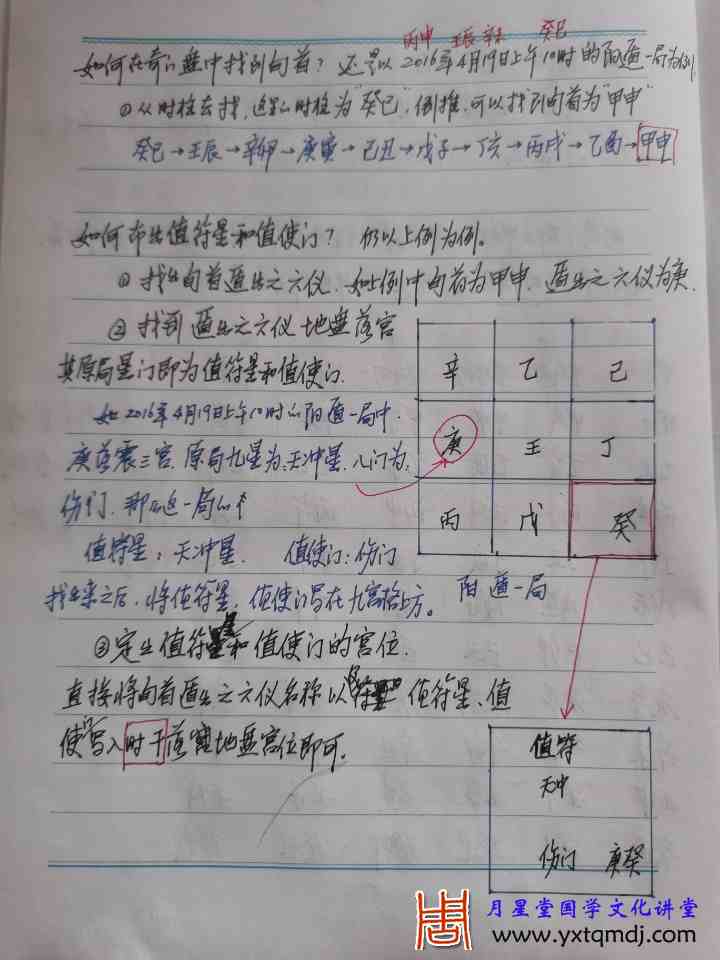 丙申 壬辰 辛未 癸巳
如何在奇门盘中找到旬首？还是以2016年4月19日上午10时的阳遁一局为例
①从时柱去找，这里的时柱为“癸巳”，倒推，可以找到旬首为“甲申”
癸巳→壬辰→辛卯→庚寅→己丑→戊子→丁亥→丙戌→乙酉→甲申
如何布出值符星和值使门？仍以上例为例。
①找出旬首遁出之六仪，如上例中旬首为甲申，遁出之六仪为庚.
②找到遁出之六仪地盘落宫
其原局星门即为值符星和值使门.
如2016年4月19日上午10时的阳遁一局中.
庚落震三宫，原局九星为：天冲星，八门为：
伤门，那么这一局的
值符星：天冲星. 值使门：伤门
找出来之后，将值符星，值使门写在九宫格上方。
辛 乙 己
庚 壬 丁
丙 戊 癸
阳遁一局
③定出值符和值使门的宫位.
直接将旬首遁出之六仪名称以 值符星、值
使门写入时干落宫地盘宫位即可.
值符
天冲
伤门 庚癸
月星堂国学文化讲堂
www.yxtqmdj.com